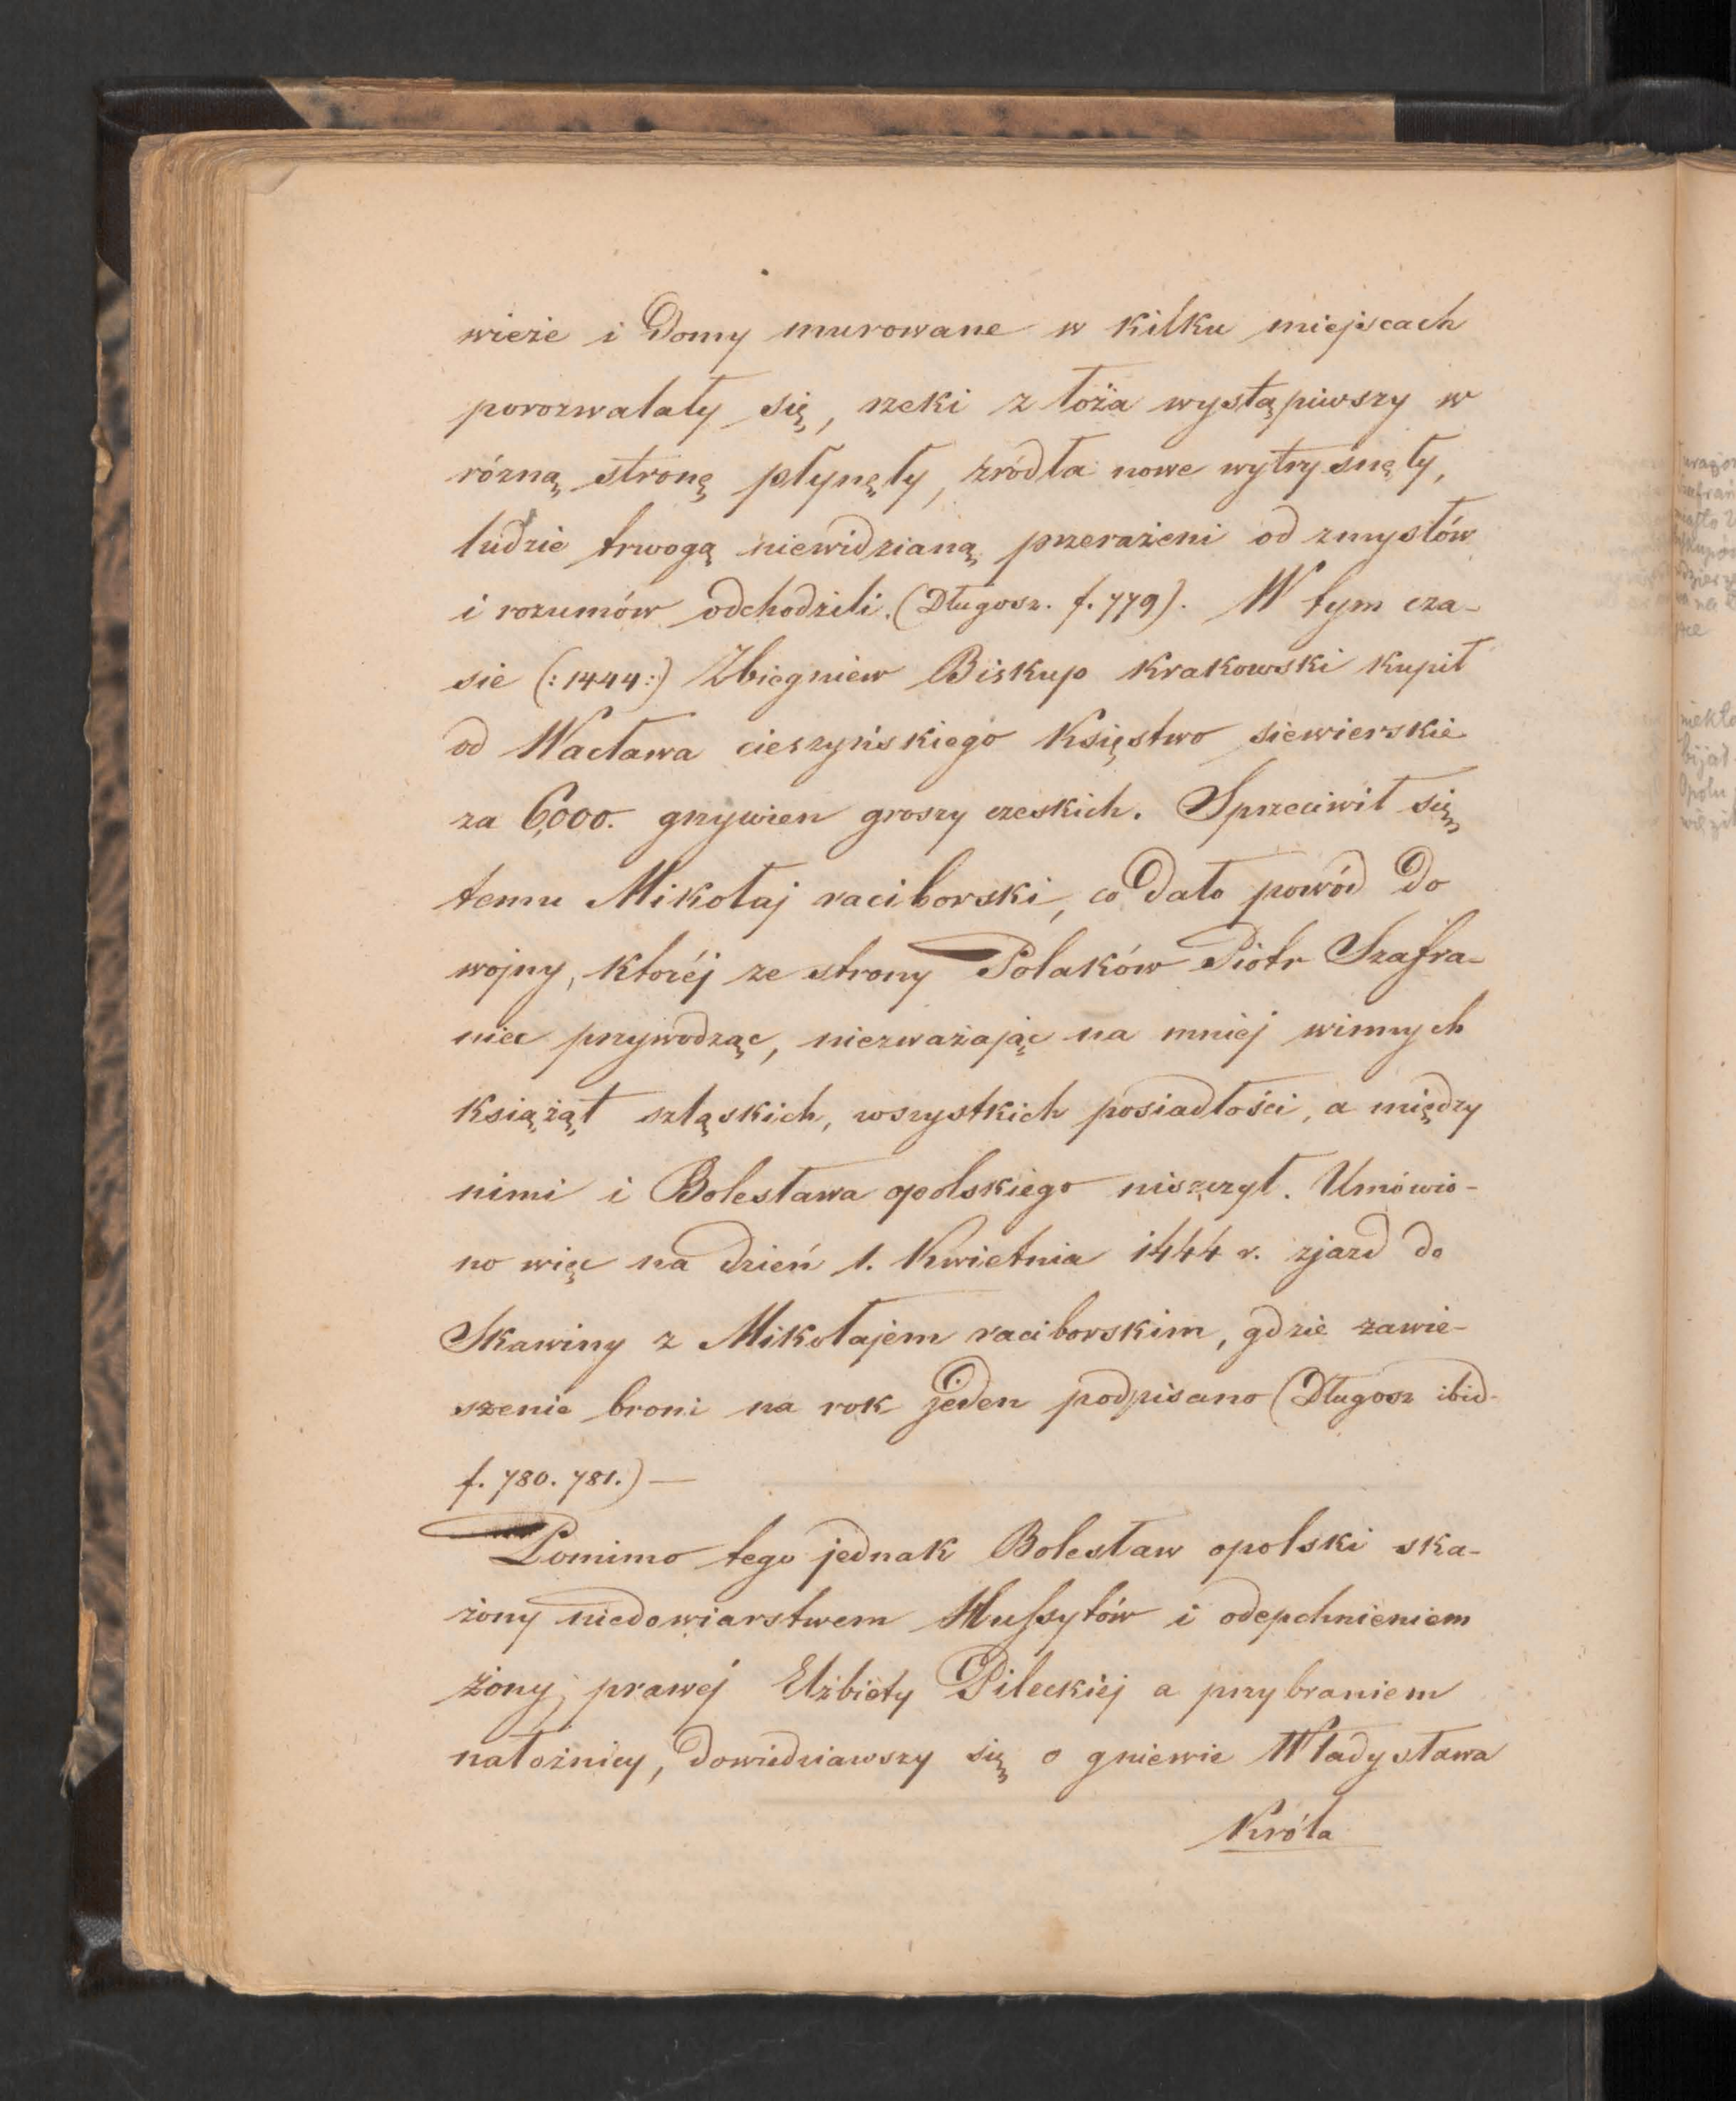 wieże i Domy murowane w kilku miejscach
porozwalały się, rzeki z łoża wystąpiwszy w
rózną stronę płynęły, źródła nowe wytrysnęły,
ludzie trwogą niewidzianą przerażeni od zmysłów
i rozumów odchodzili. (Długosz. f. 779). W tym cza-
sie (: 1444 :) Zbigniew Biskup Krakowski kupił
od Wacława cieszyńskiego Księstwo siewierskie
za 6,000. grzywien groszy czeskich. Sprzeciwił się
temu Mikołaj raciborski, co Dało powód Do
wojny, któréj ze strony Polaków Piotr Szafra-
niec przywodząc, niezważając na mniej winnych
Książąt szląskich, wszystkich posiadłości, a między
nimi i Bolesława opolskiego niszczył. Umówio-
no więc na Dzień 1. Kwietnia 1444 r. zjazd do
Skawiny z Mikołajem raciborskim, gdzie zawie-
szenie broni na rok jeden podpisano (Długosz ibid.
f. 780. 781.) —
Pomimo tego jednak Bolesław opolski ska-
żony niedowiarstwem Hussytów i odepchnieniem
żony prawej Elżbiety Pileckiéj a przybraniem
nałożnicy, Dowiedziawszy się o gniewie Władysława
Króla